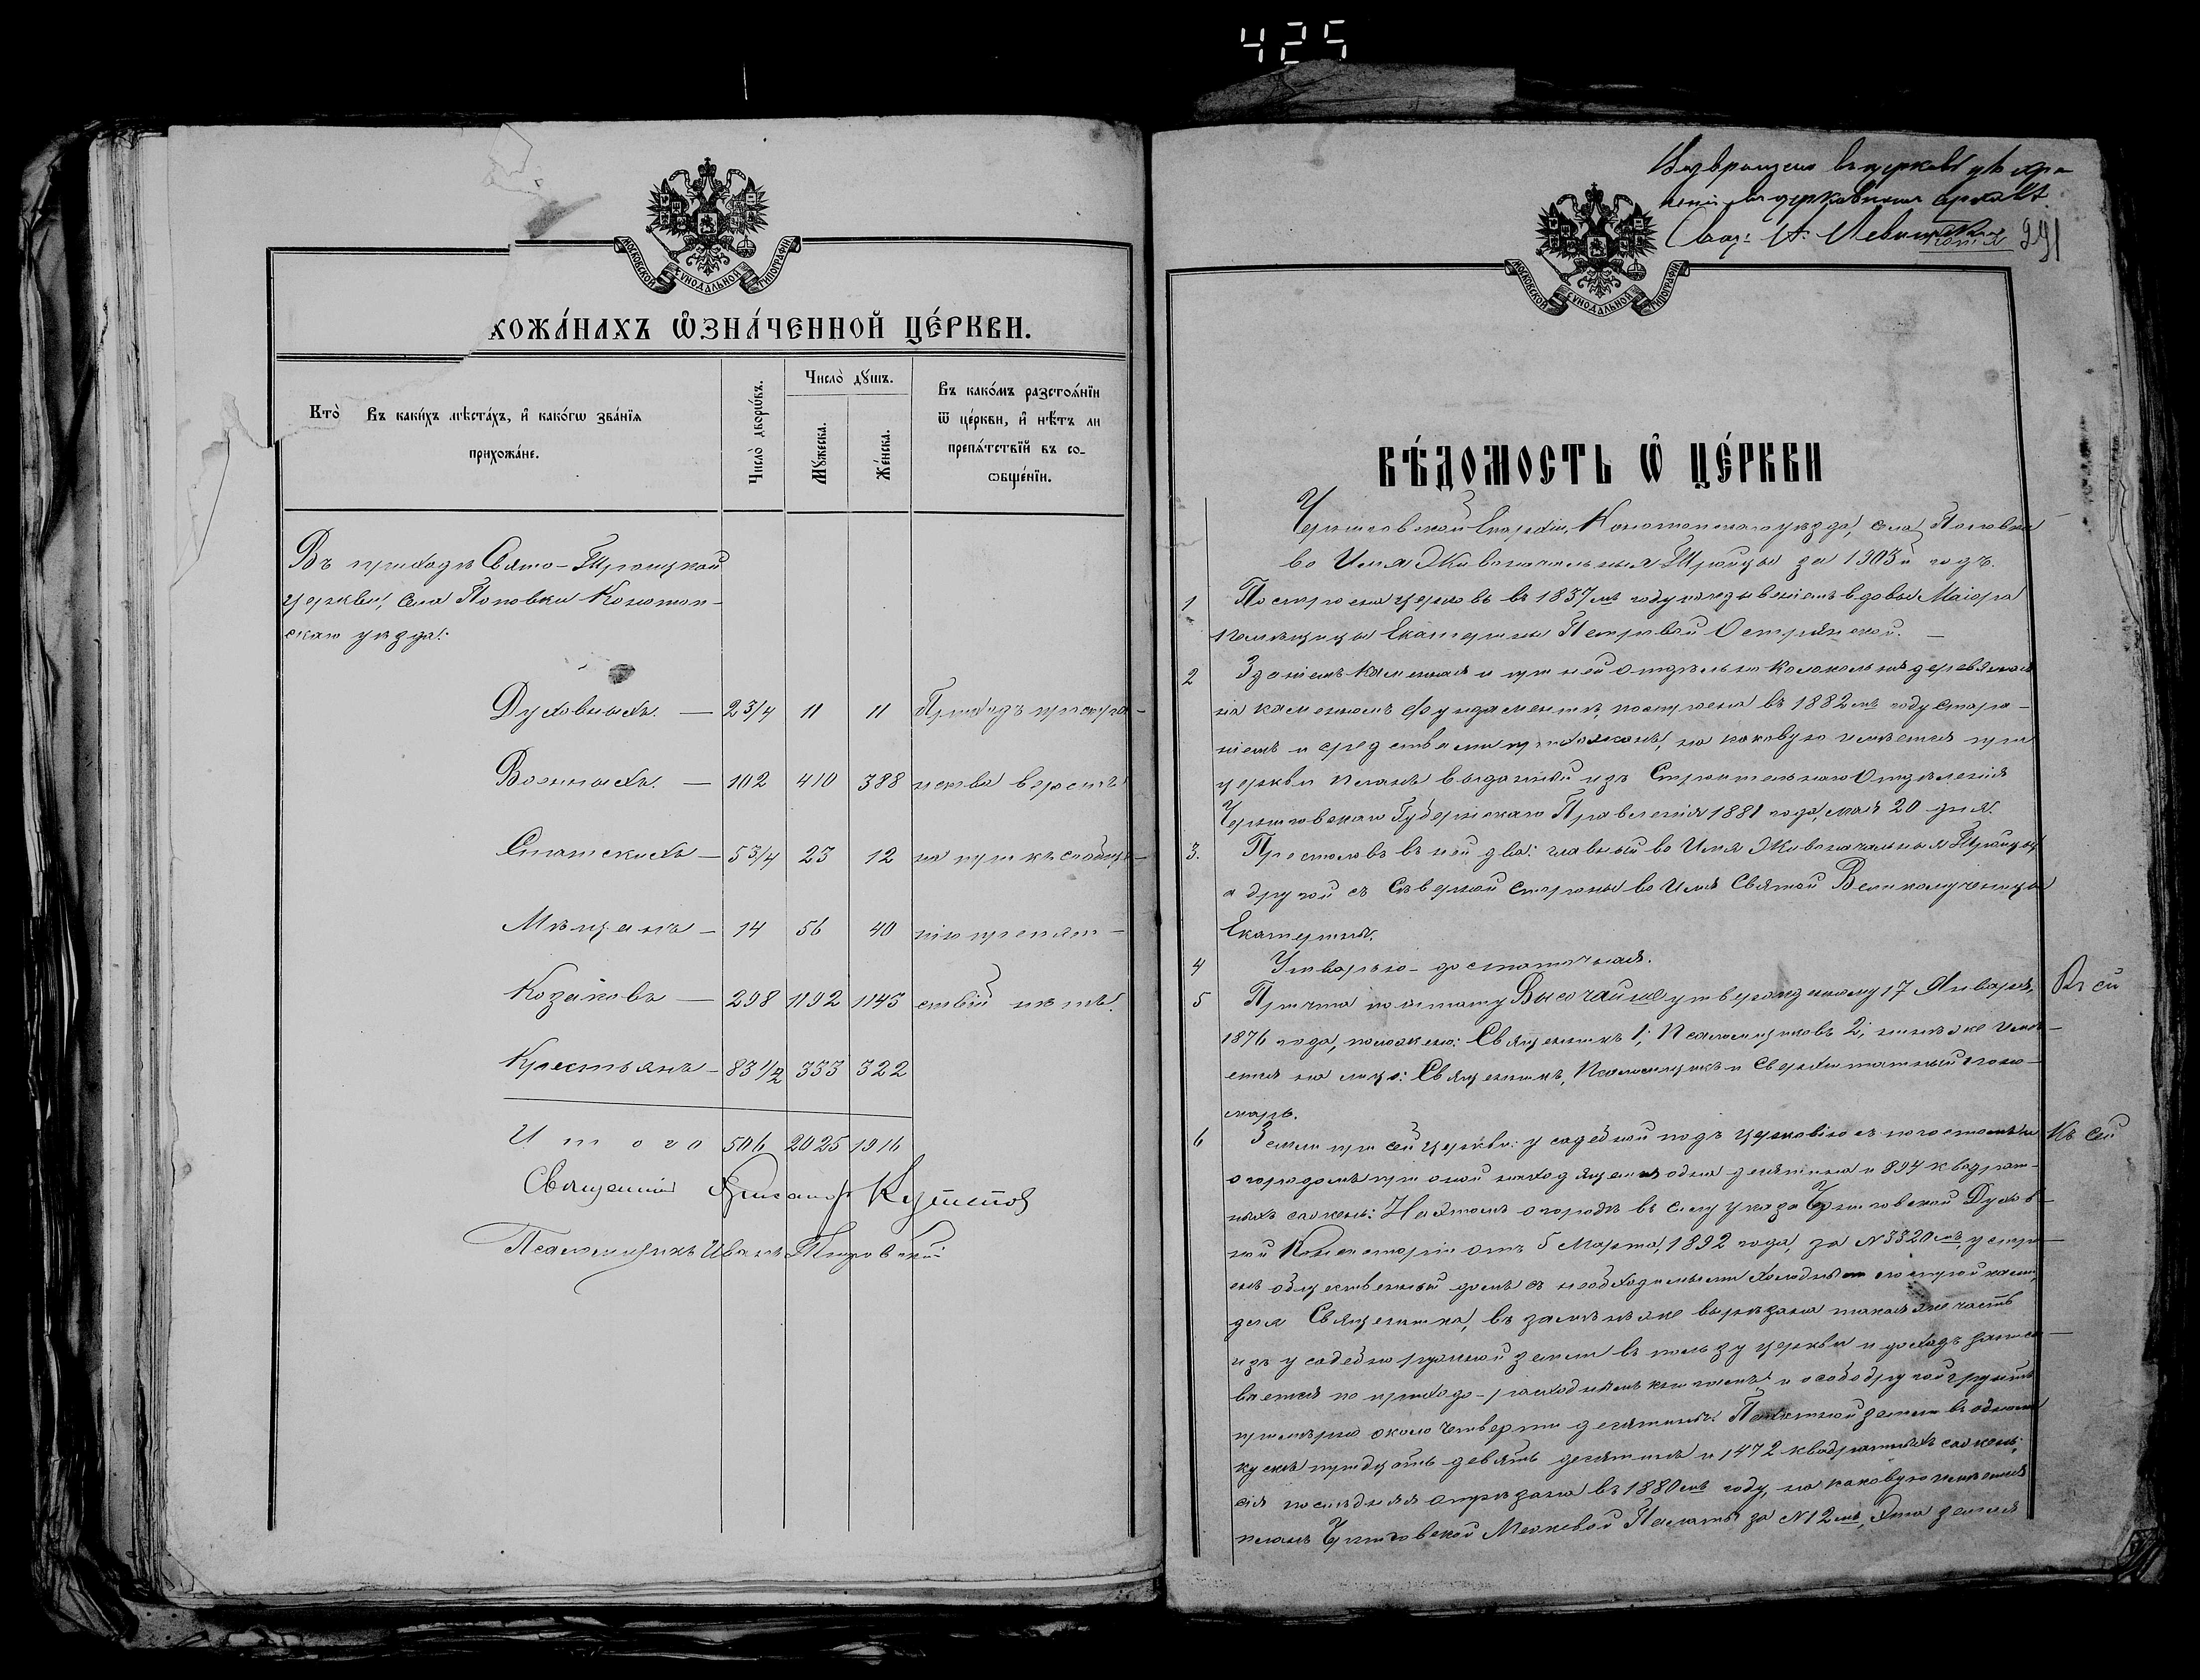 425
МОСКОВСКОЙ СѴНОДАЛЬНОЙ ТИПОГРАФІИ
ХОЖА́НАХЪ ѠЗНА́ЧЕННОЙ ЦЕ́РКВИ.
Кто̀ Въ каки́хъ мѣста́хъ, и҆ како́гѡ зва́нїѧ
прихожа́не.
Число̀ дворѡ́въ.
Число̀ дꙋ́шъ.
Мꙋ́жеска.
Же́нска.
Въ како́мъ разстоѧ́нїи
ѿ це́ркви, и҆ нѣ́тъ ли
препѧ́тствїй въ со-
ѻбще́нїи.
Въ приходѣ Свято-Троицкой
церкви, села Поповки Конотоп-
скаго уѣзда:
Духовныхъ. — 2 3/4 11 11 Приходъ въ окруж-
Военныхъ. — 102 410 388 верстъ
Статскихъ — 5 3/4 23 12 на пути къ сообще-
Мѣщанъ — 14 56 40 нію препят-
Козаковъ — 298 1192 1143 ствій нѣтъ.
Крестьянъ — 83 1/2 333 322
Итого 506 2025 1916
Священникъ
Псаломщикъ Иванъ
Возвращена въ церковь для хра-
ненія въ церковномъ архивѣ.
Свящ. А. Левицкій
Копія 291
МОСКОВСКОЙ СѴНОДАЛЬНОЙ ТИПОГРАФІИ
ВѢ́ДОМОСТЬ Ѡ҆ ЦЕ́РКВИ
Черниговской Епархіи, Конотопскаго уѣзда, села Поповки
во Имя Живоначальныя Троицы за 1903й годъ.
1 Построена церковь въ 1837мъ году иждивеніемъ вдовы Маіора
помѣщицы Екатерины Петровой Острянской. —
2 Зданіемъ каменная и при ней отдѣльно колокольня деревянная
на каменномъ фундаментѣ, построена въ 1882мъ году стара-
ніемъ и средствами прихожанъ, на каковую имѣется при
церкви планъ выданный изъ Строительнаго Отдѣленія
Черниговскаго Губернскаго Правленія 1881 года, мая 20 дня.
3. Престоловъ въ ней два: главный во Имя Живоначальныя Троицы,
а другой съ сѣверной стороны во имя Святой Великомученицы
Екатерины.
4 Утварью – достаточная.
5 Причта по штату Высочайше утвержденному 17 Января,
1876 года, положено: Священникъ 1, Псаломщиковъ 2; нынѣ же имѣ-
ется на лицо: Священникъ, Псаломщикъ и Сверхштатный поно-
марь.
6 Земли при сей церкви: усадебной подъ церковію съ погостомъ и
огородомъ при оной находящемся одна десятина и 894 квадрат-
ныхъ сажень: На этомъ огородѣ въ силу указа Черниговской Духов-
ной Консисторіи отъ 5 Марта, 1892 года, за №3320мъ, устро-
енъ общественный домъ съ необходимыми холодными постройками,
для Священника, въ замѣнъ же вырѣзана такая же часть
изъ усадебно ружной земли въ пользу церкви и доходъ записы-
вается по приходо-расходнымъ книгамъ и особо другой грунтъ
примѣрно около четверти десятины. Пахатной земли въ одномъ
кускѣ тридцать девять десятинъ и 1472 квадратныхъ сажень;
сія послѣдняя отрѣзана въ 1880мъ году, на каковую имѣется
планъ Черниговской Межевой Палаты за №12мъ, Эта земля
Къ сей
Къ сей